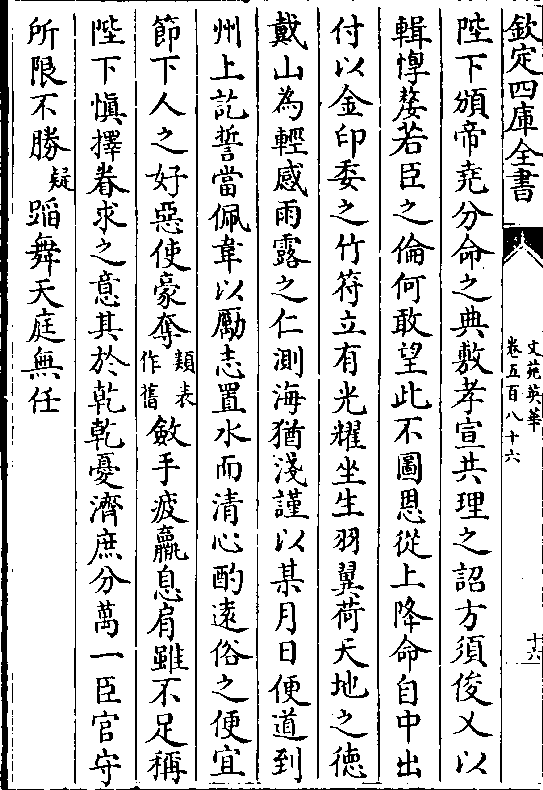 欽定四庫全書
文苑英華
卷五百八十六
十六
陛下頒帝堯分命之典敷孝宣共理之詔方須俊乂以
輯惸嫠若臣之倫何敢望此不圖恩從上降命自中出
付以金印委之竹符立有光耀坐生羽翼荷天地之德
戴山為輕感雨露之仁測海猶淺謹以某月日便道到
州上訖誓當佩韋以勵志置水而清心酌遠俗之便宜
節下人之好惡使豪奪類表作舊斂手疲羸息肩雖不足稱
陛下慎擇眷求之意其於乾乾憂濟庶分萬一臣官守
所限不勝疑蹈舞天庭無任